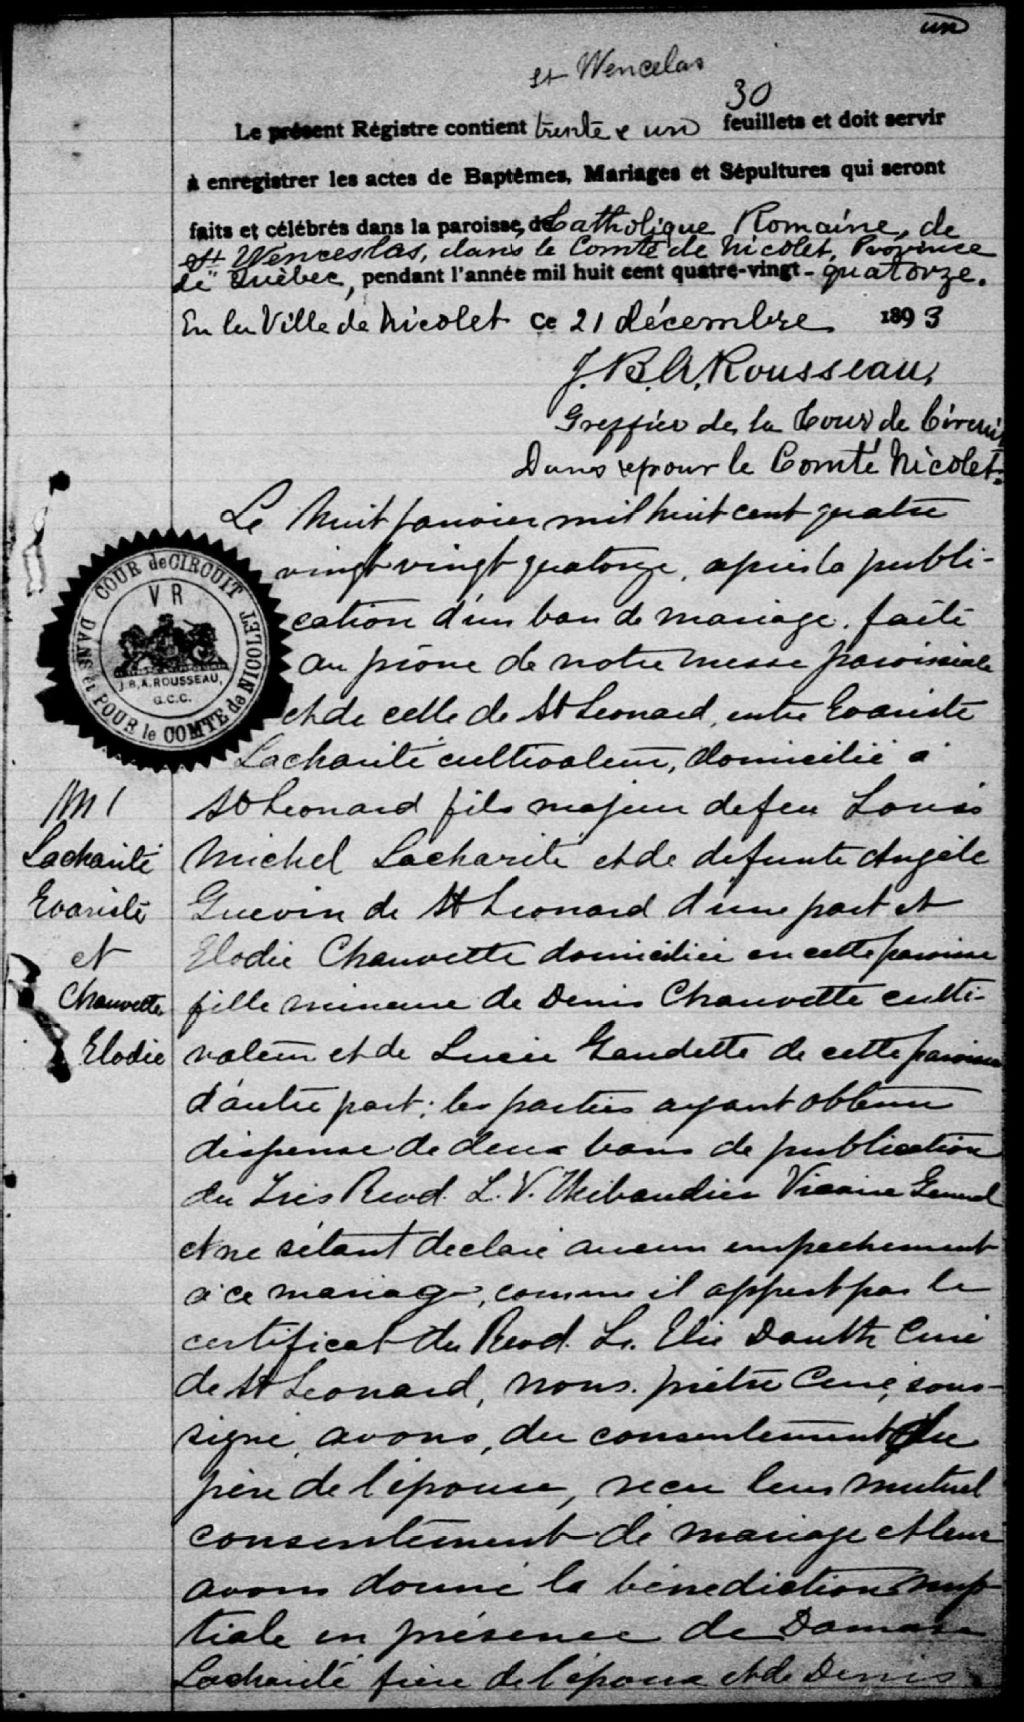 un
St Wencelas
30
Le présent Régistre contient trente & un feuillets et doit servir
à enregistrer les actes de Baptêmes, Mariages et Sépultures qui seront
faits et célébrés dans la paroisse, de Catholique Romaine, de
St Wenceslas, dans le Comté de Nicolet, Province
de Québec, pendant l'année mil huit cent quatre-vingt-quatorze.
En la Ville de Nicolet ce 21 décembre 1893
J. B. A. Rousseau,
Greffier de la Cour de Circuit
Dans & pour le Comté Nicolet.
Le huit janvier mil huit cent quatre
vingt vingt quatorze, après la publi-
cation d'un ban de mariage, faite
au prône de notre messe paroissiale
et de celle de St Leonard, entre Evariste
Lacharité cultivateur, domicilié à
St Leonard fils majeur de feu Louis
Michel Lacharité et de defunte Angèle
Guevin de St Leonard d'une part et
Elodie Chauvette domiciliée en cette paroisse
fille mineure de Denis Chauvette culti-
vateur et de Lucie Gaudette de cette paroisse
d'autre part; les parties ayant obtenu
dispense de deux bans de publication
du Très Revd. L. V. Thibaudier Vicaire General
et ne s'étant declaré aucun empechement
à ce mariage, comme il appert par le
certificat du Revd. Ls. Elie Dauth Curé
de St Leonard, nous, prêtre Curé, sous-
signé, avons, du consentement du
père de l'épouse, recu leur mutuel
consentement de mariage et leur
avons donné la bénédiction nup-
tiale en présence de Damase
Lacharité frère de l'époux et de Denis
COUR de CIRCUIT
DANS et POUR le COMTE de NICOLET
V R
J.B.A. ROUSSEAU,
G.C.C.
M 1
Lacharité
Evariste
et
Chauvette
Elodie